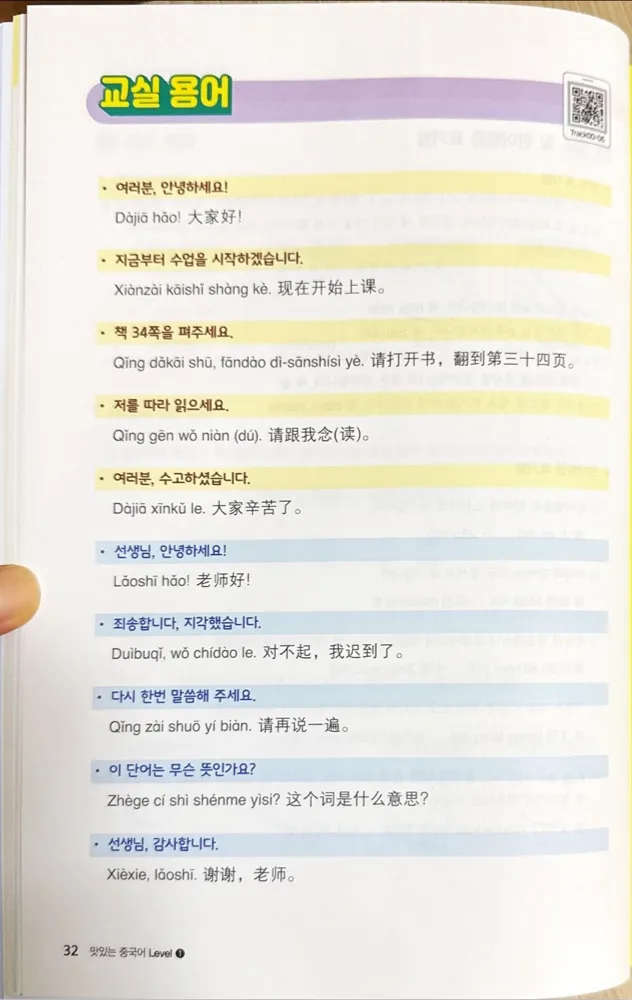 교실 용어
Track00-06
• 여러분, 안녕하세요!
Dàjiā hǎo! 大家好!
• 지금부터 수업을 시작하겠습니다.
Xiànzài kāishǐ shàng kè. 现在开始上课。
• 책 34쪽을 펴주세요.
Qǐng dǎkāi shū, fāndào dì-sānshísì yè. 请打开书，翻到第三十四页。
• 저를 따라 읽으세요.
Qǐng gēn wǒ niàn (dú). 请跟我念(读)。
• 여러분, 수고하셨습니다.
Dàjiā xīnkǔ le. 大家辛苦了。
• 선생님, 안녕하세요!
Lǎoshī hǎo! 老师好!
• 죄송합니다, 지각했습니다.
Duìbuqǐ, wǒ chídào le. 对不起，我迟到了。
• 다시 한번 말씀해 주세요.
Qǐng zài shuō yí biàn. 请再说一遍。
• 이 단어는 무슨 뜻인가요?
Zhège cí shì shénme yìsi? 这个词是什么意思?
• 선생님, 감사합니다.
Xièxie, lǎoshī. 谢谢，老师。
32 맛있는 중국어 Level ❶